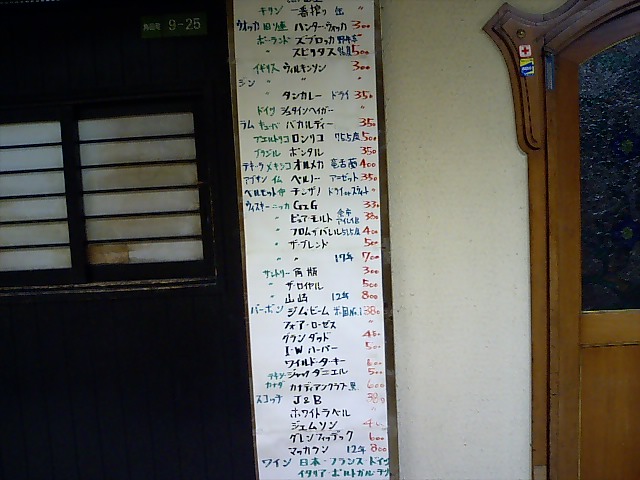 9-25
キリン 一番搾り 缶 〃
ウオッカ 旧ソ連 ハンターウォッカ 300
ポーランド ズブロッカ 野牛草 〃
〃 スピリタス 500
イギリス ウィルキンソン 300
ジン 〃 〃
〃 タンカレー ドライ 350
ドイツ シュタインヘイガー 〃
ラム キューバ バカルディー 350
プエルトリコ ロンリコ 75.5度 500
ブラジル ポンタル 350
テキーラ メキシコ オルメカ 竜舌蘭 400
アブサン ペルノー アニゼット 350
ベルモット チンザノ ドライorスイート 〃
ウィスキー ニッカ G&G 330
〃 ピュアモルト 380
〃 フロムザバレル 51.5度 400
〃 ザ・ブレンド 500
〃 〃 17年 700
サントリー 角瓶 300
〃 ザ・ローヤル 500
〃 山崎 12年 800
バーボン ジムビーム 380
フォア・ローゼス 〃
グランダッド 450
I・W ハーパー 500
ワイルド・ターキー 600
テネシー ジャックダニエル 500
カナダ カナディアンクラブ 黒 600
スコッチ J&B 380
ホワイトラベル 〃
ジェムソン
グレンフィディック 600
マッカラン 12年 800
ワイン 日本・フランス・ドイツ
イタリア・ポルトガル・チリ